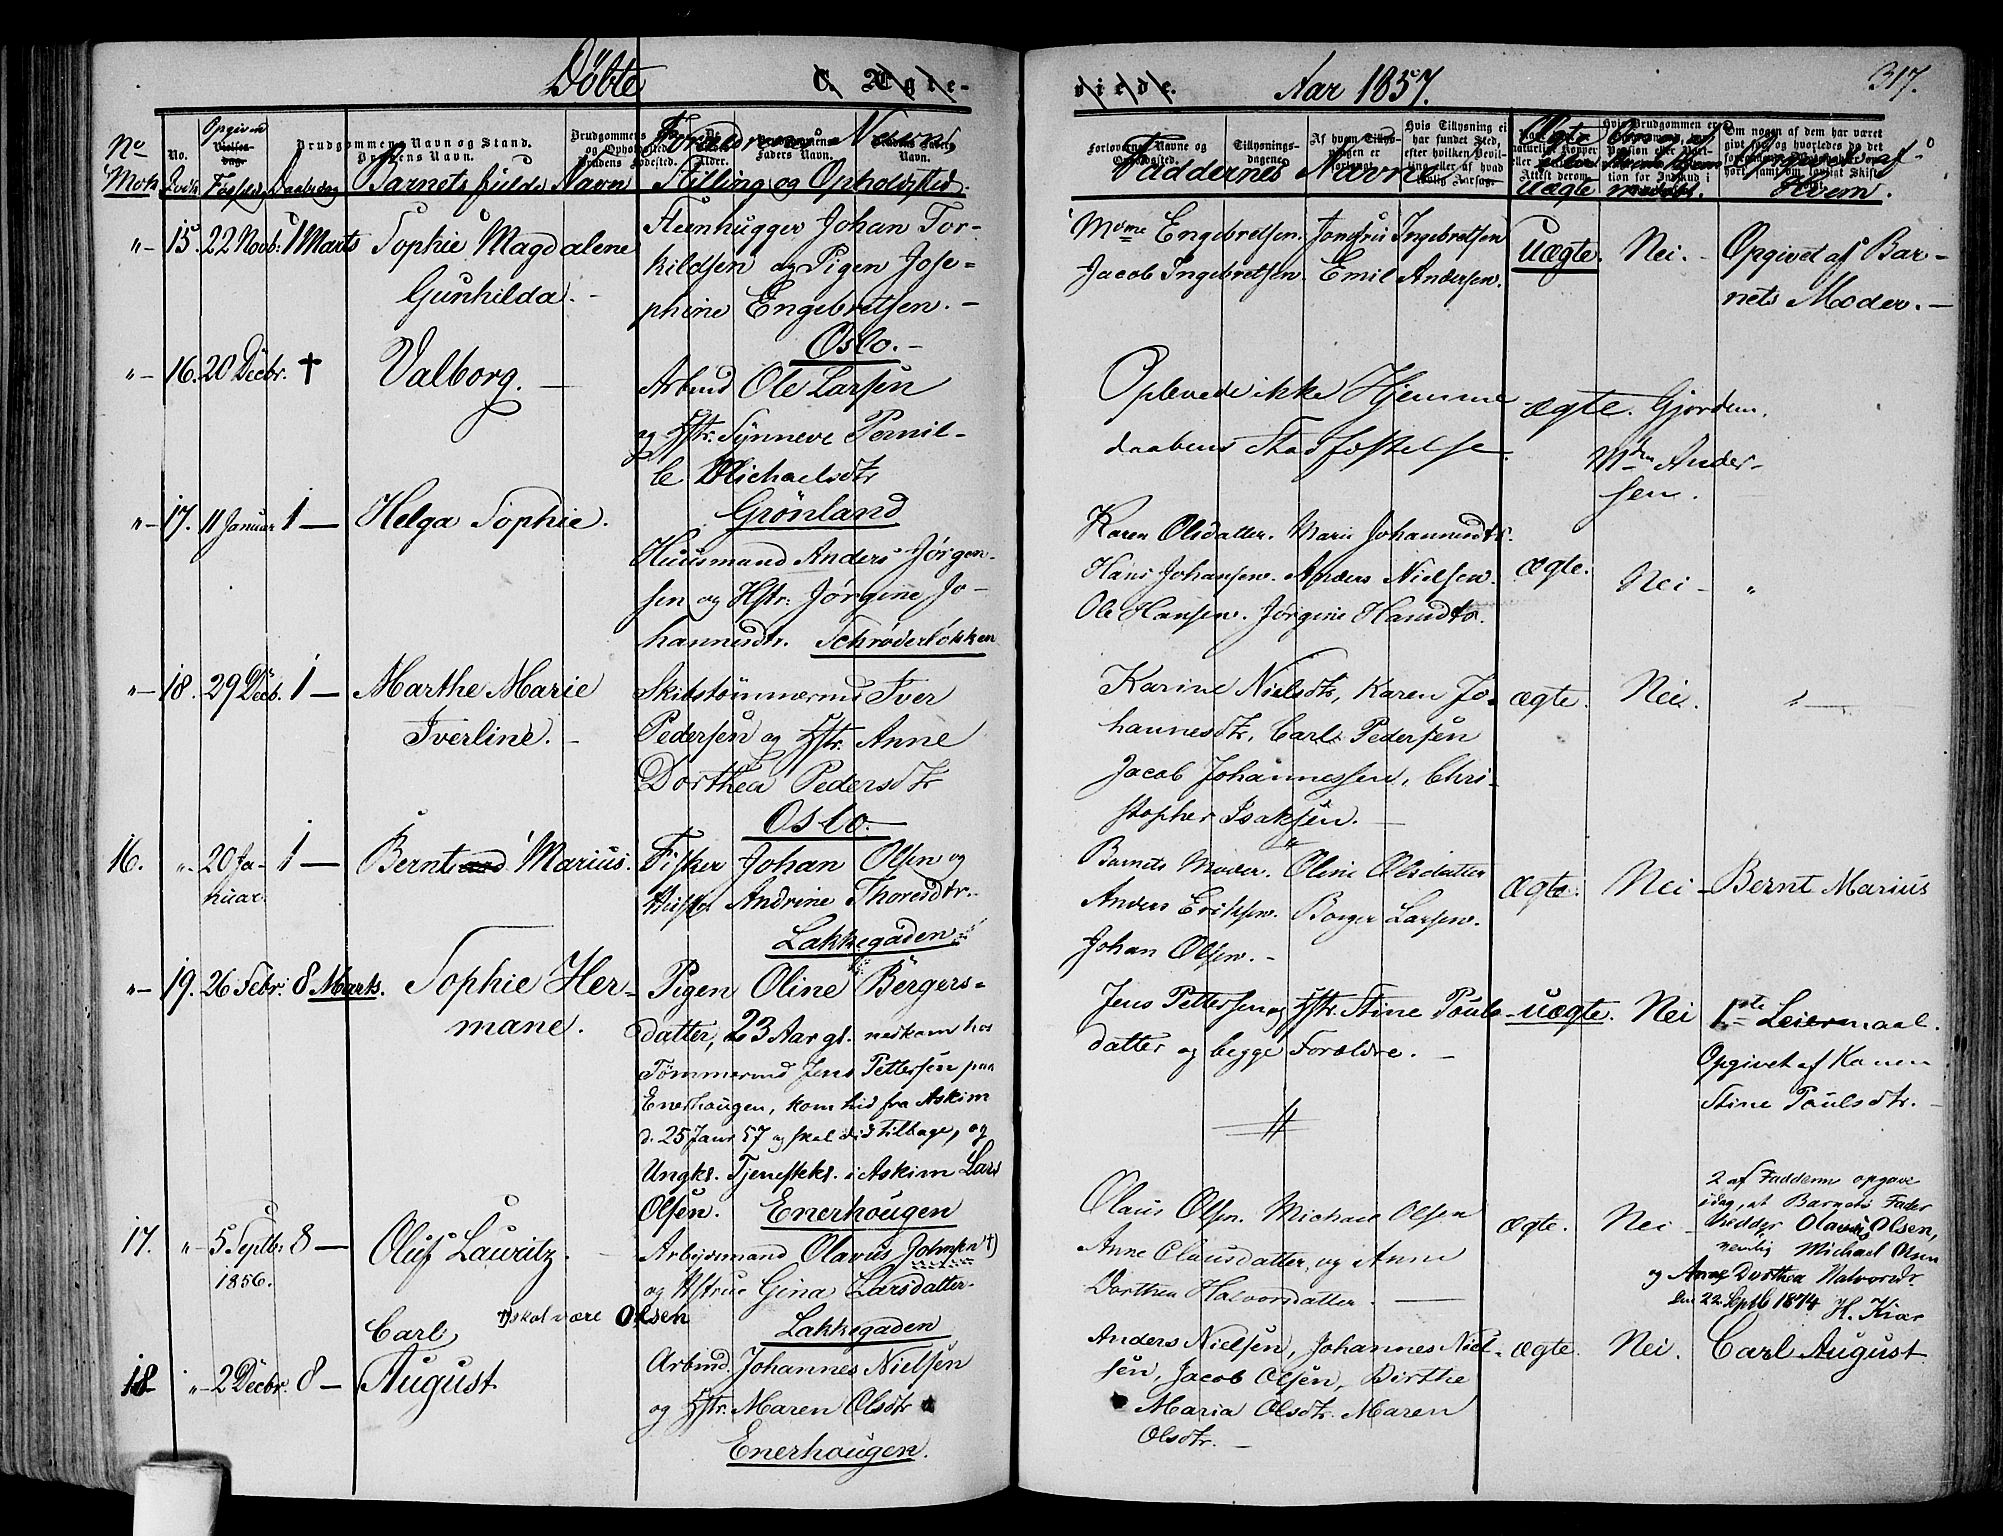 Döbte C. Ægte-
viede. Aar 1857. 317.
No Mdk. Qvdk. Opgiven Fødsels Daabsdag Barnets fulde Navn Forældrenes Navn, Stilling og Opholdssted.
Faddernes Navne Ægte eller Uægte Opgivet af Hvem.
"- 15. 22 Novb. 1 Marts Sophie Magdalene
Gunhilda. -
Steenhugger Johan Tor-
kildsen og Pigen Jose-
phine Engebretsen. -
Oslo. -
Mdme Engebretsen. Jomfru Ingebretsen
Jacob Ingebretsen. Emil Andersen.
Uægte. Nei. - Opgivet af Bar-
nets Moder. -
"- 16. 20 Decbr. † Valborg. -
Arbmd Ole Larsen
og Hstr. Synneve Pernil-
le Michaelsdtr
Grönland
Oplevede ikke Hjemme
daabens Stadfæstelse.
ægte. Gjordem.
Mdm Ander-
sen.
"- 17. 11 Januar 1 - Helga Sophie.
Huusmand Anders Jörgen-
sen og Hstr. Jörgine Jo-
hannesdtr. Schröderlökken
Karen Olsdatter. Marie Johannesdtr.
Hans Johansen. Anders Nielsen.
Ole Hansen. Jörgine Hansdtr.
ægte. Nei - "
"- 18. 29 Decb. 1 - Marthe Marie
Iverline. -
Skibstömmermd Iver
Pedersen og Hstr. Anne
Dorthea Pedersdtr
Oslo. -
Karine Nielsdtr, Karen Jo-
hannesdtr, Carl Pedersen
Jacob Johannessen, Chri-
stopher Isaksen. -
ægte. Nei. "-
16. "- 20 Ja-
nuar. 1 - Bernt Marius.
Fisker Johan Olsen og
Hustr Andrine Thoresdtr. -
Lakkegaden
Barnets Moder. Oline Olsdatter
Anders Eriksen. Borger Larsen.
Johan Olsen. -
Ægte. Nei - Bernt Marius
"- 19. 26 Febr. 8 Marts. Sophie Her-
mane.
Pigen Oline Bergers-
datter, 23 Aar gl. nedkom hos
Tömmermd Jens Pettersen paa
Enerhougen, kom hid fra Askim
d. 25 Janr 57 og skal did tilbage, og
Ungkl. Tjenestekl. i Askim Lars
Olsen. Enerhougen
Jens Pettersen og Hstr. Stine Pouls-
datter og begge Forældre. -
uægte. Nei 1ste Leiermaal.
Opgivet af Konen
Stine Poulsdtr. -
17. "- 5 Septbr.
1856. 8 - Oluf Lauritz.
Arbejdsmand Olavus Johnsen †)
og Hstrue Gina Larsdatter.
†) skal være Olsen
Lakkegaden
Olaus Olsen. Michael Olsen
Anne Olausdatter, og Anne
Dorthea Halvorsdatter. -
ægte. Nei -
2 af Fadderne opgave
idag, at Barnets Fader
hedder Olavus Olsen,
nemlig Michael Olsen
og Anne Dorthea Halvorsdr.
den 22 Septb 1874 H. Kiær
18 "- 2 Decbr. 8 - Carl
August
Arbmd. Johannes Nielsen
og Hstr. Maren Olsdtr
Enerhougen.
Anders Nielsen, Johannes Niel-
sen, Jacob Olsen, Birthe
Maria Olsdtr. Maren
Olsdtr. -
ægte. Nei. Carl August